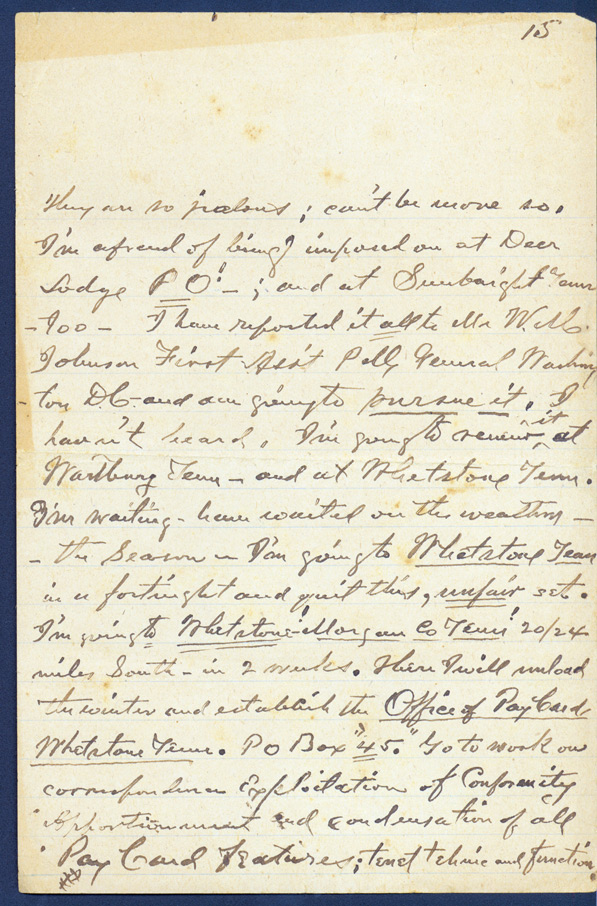 15
They are so jealous; can't be more so.
I'm afraid of being imposed on at Deer
Lodge P O! – ; and at Sunbright Tenn
– Too – I have reported it all to Mr W.
Johnson First Ass't General Washing
ton D.C. and am going to pursue it. I
haven't heard. I'm going to renew it at
Wartburg Tenn – and at Whetstone Tenn.
I'm waiting – have waited on the weather –
– the season – I'm going to Whetstone Tenn
in a fortnight and quit this, unfair set.
I'm going to "Whetstone" – Morgan Co Tenn! 20/24
miles South – in 2 weeks. There I will unload
the winter and establish the Office of Pay Card
Whetstone Tenn. P O Box "45." Go to work on
correspondence Exploitation of Conformity
Apportionment and condensation of all
"Pay Card features; tenet and function